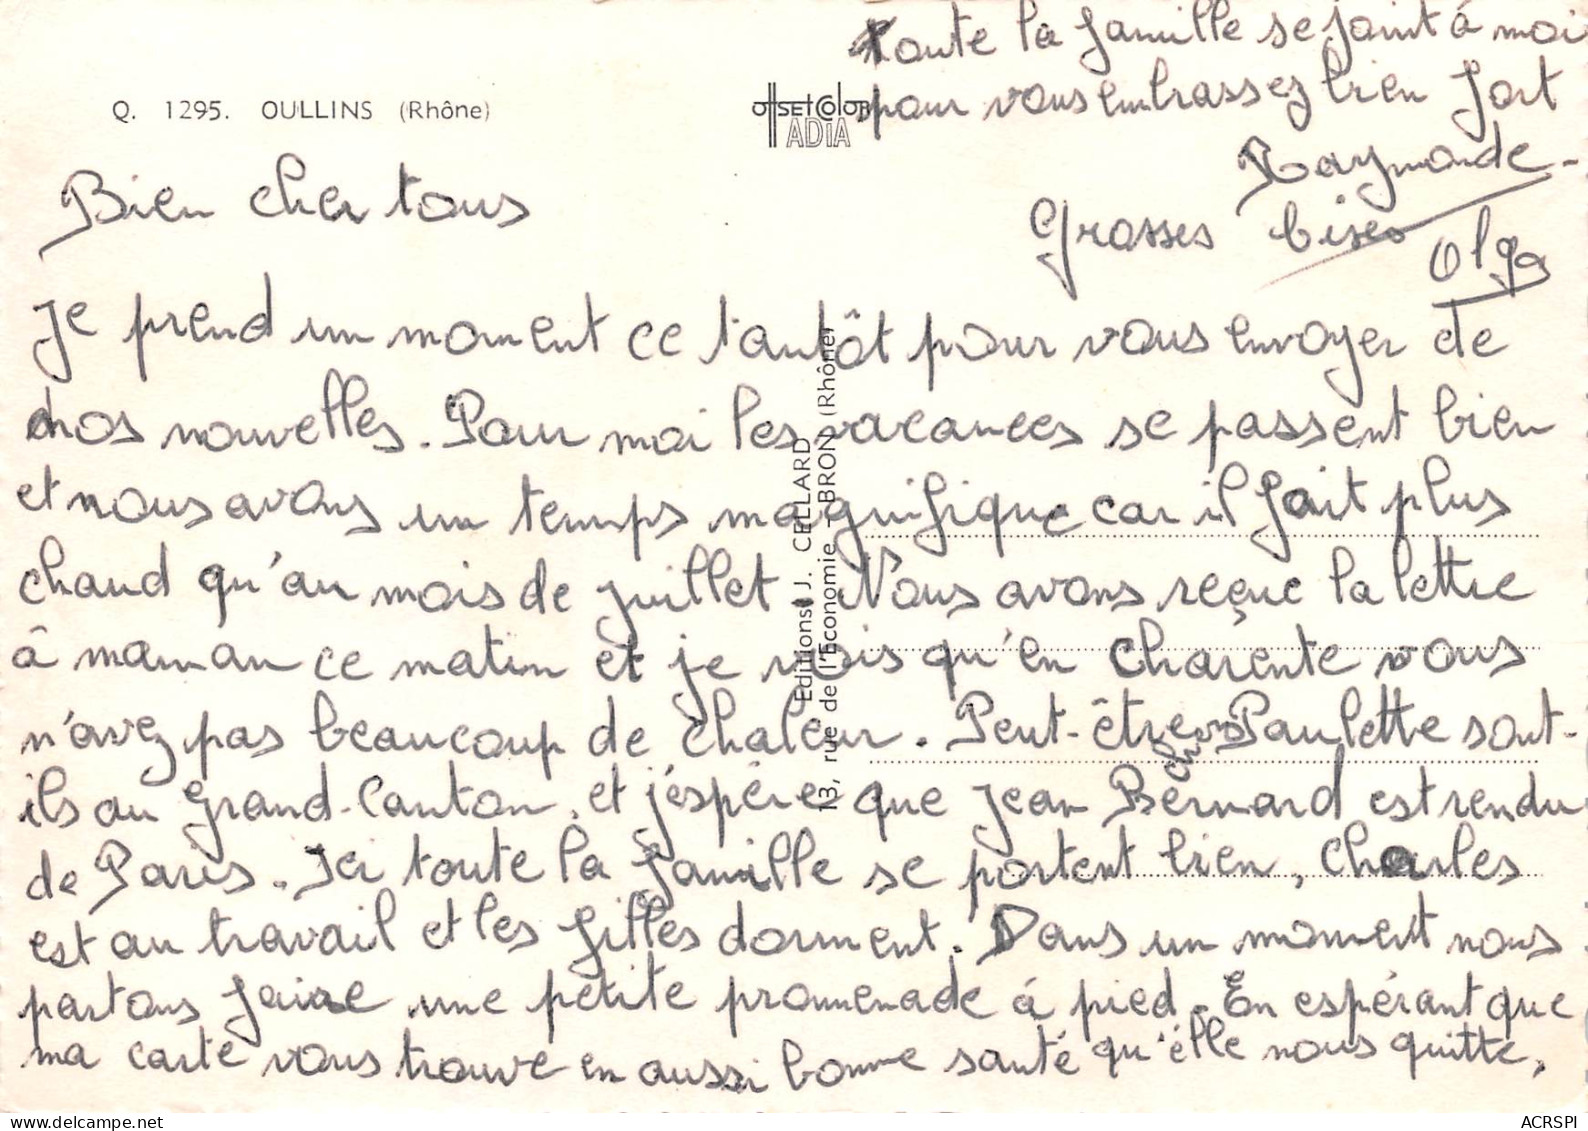 Toute la famille se joint à moi
pour vous embrassez bien fort
Raymonde -
Grosses bises
Olga
Q. 1295. OULLINS (Rhône)
OffSET COLOR
ADIA
Bien cher tous
Je prend un moment ce tantôt pour vous envoyer de
nos nouvelles. Pour moi les vacances se passent bien
et nous avons un temps magnifique car il fait plus
chaud qu'au mois de juillet. Nous avons reçue la lettre
à maman ce matin et je vois qu'en Charente vous
n'avez pas beaucoup de chaleur. Peut-être Paulette sont-
ils au Grand-Canton, et j'espère que Jean Bernard est rendu
de Paris. Ici toute la famille se portent bien, Charles
est au travail et les filles dorment. Dans un moment nous
partons faire une petite promenade à pied. En espérant que
ma carte vous trouve en aussi bonne santé qu'élle nous quitte,
Editions J. CELLARD
13, rue de l'Economie - BRON (Rhône)
ACRSPI